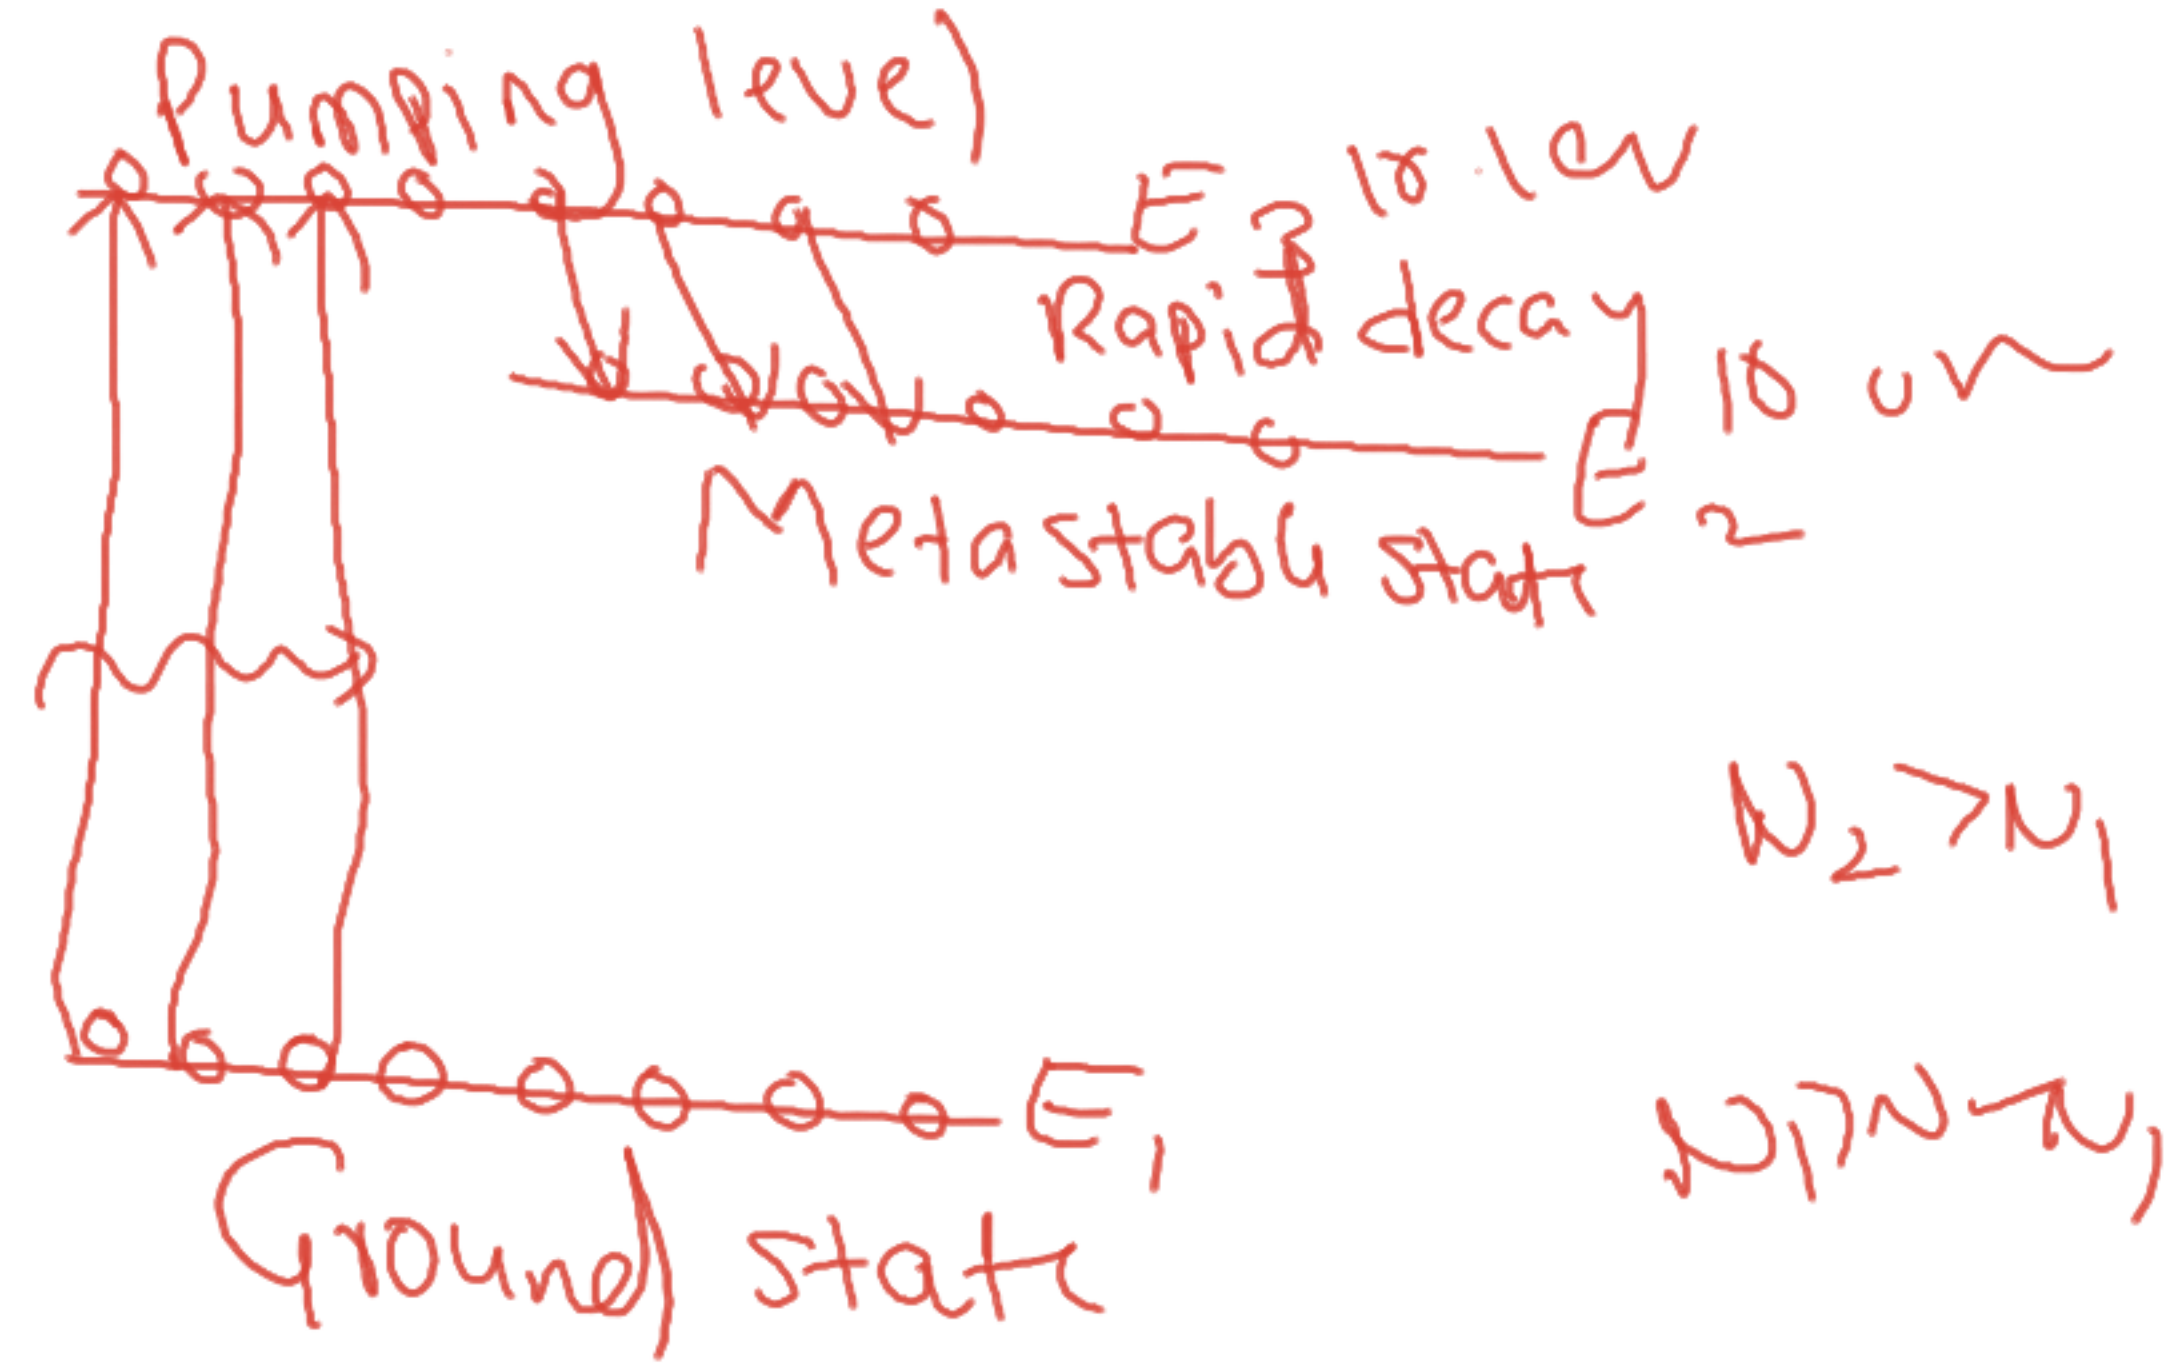 Pumping level
E3 10.1ev
Rapid decay
10 uv
E2
Metastable state
N2 > N1
E1
Ground state